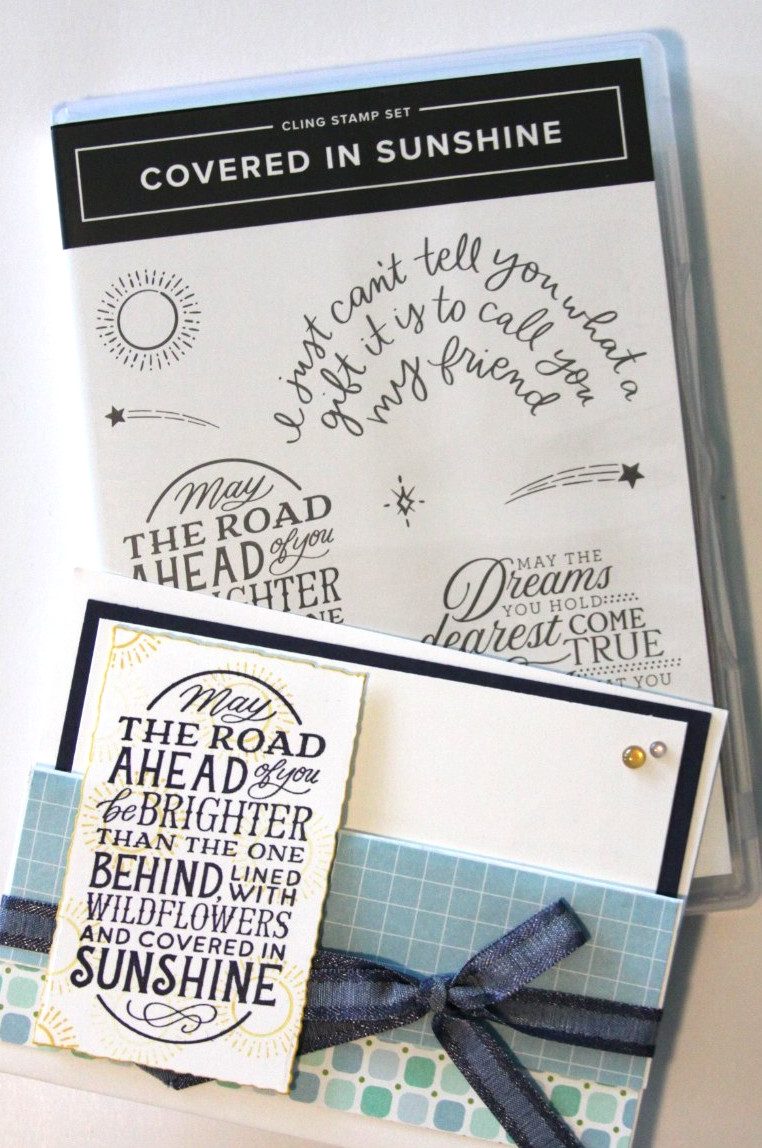 CLING STAMP SET
COVERED IN SUNSHINE
I just can't tell you what a
gift it is to call you
my friend
May
THE ROAD
AHEAD of you
BRIGHTER
MAY THE
Dreams
YOU HOLD
dearest COME
TRUE
YOU
May
THE ROAD
AHEAD of you
be BRIGHTER
THAN THE ONE
BEHIND, LINED
WITH
WILDFLOWERS
AND COVERED IN
SUNSHINE